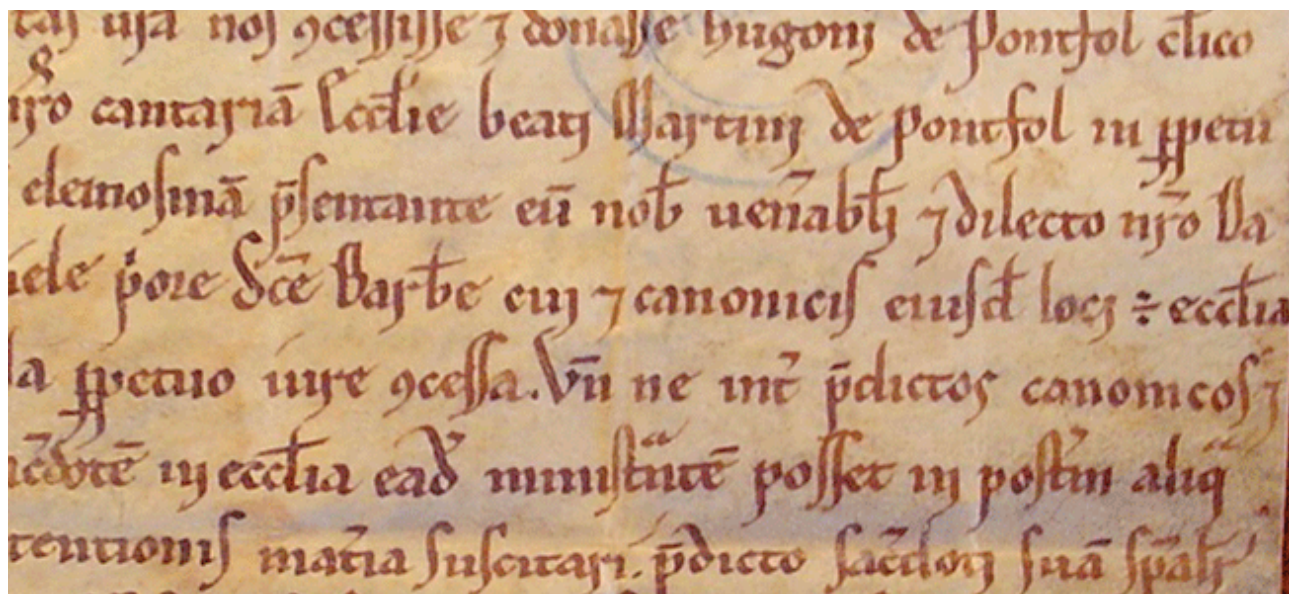 tas ur̃a nos ꝯcessisse ⁊ donasse hugoni de Pontfol cl̃ico
nr̃o cantariā Eccl̃ie beati Martini de pontfol in ꝑpetu
elemosinā p̃sentante eū nob̃ uen̄abil̃i ⁊ dilecto nr̃o Da
iele p̃ore Sc̄e Barb̃e cui ⁊ canonicis eiusd̃ loci ÷ eccl̃ia
la ꝑpetuo iure ꝯcessa. Vn̄ ne int̃ p̄dictos canonicos ⁊
ac̃dotē in eccl̃ia ead̃ ministᵃntē posset in post̃m aliqᵃ
tentionis mat̃ia suscitari. p̄dicto sac̃doti suā